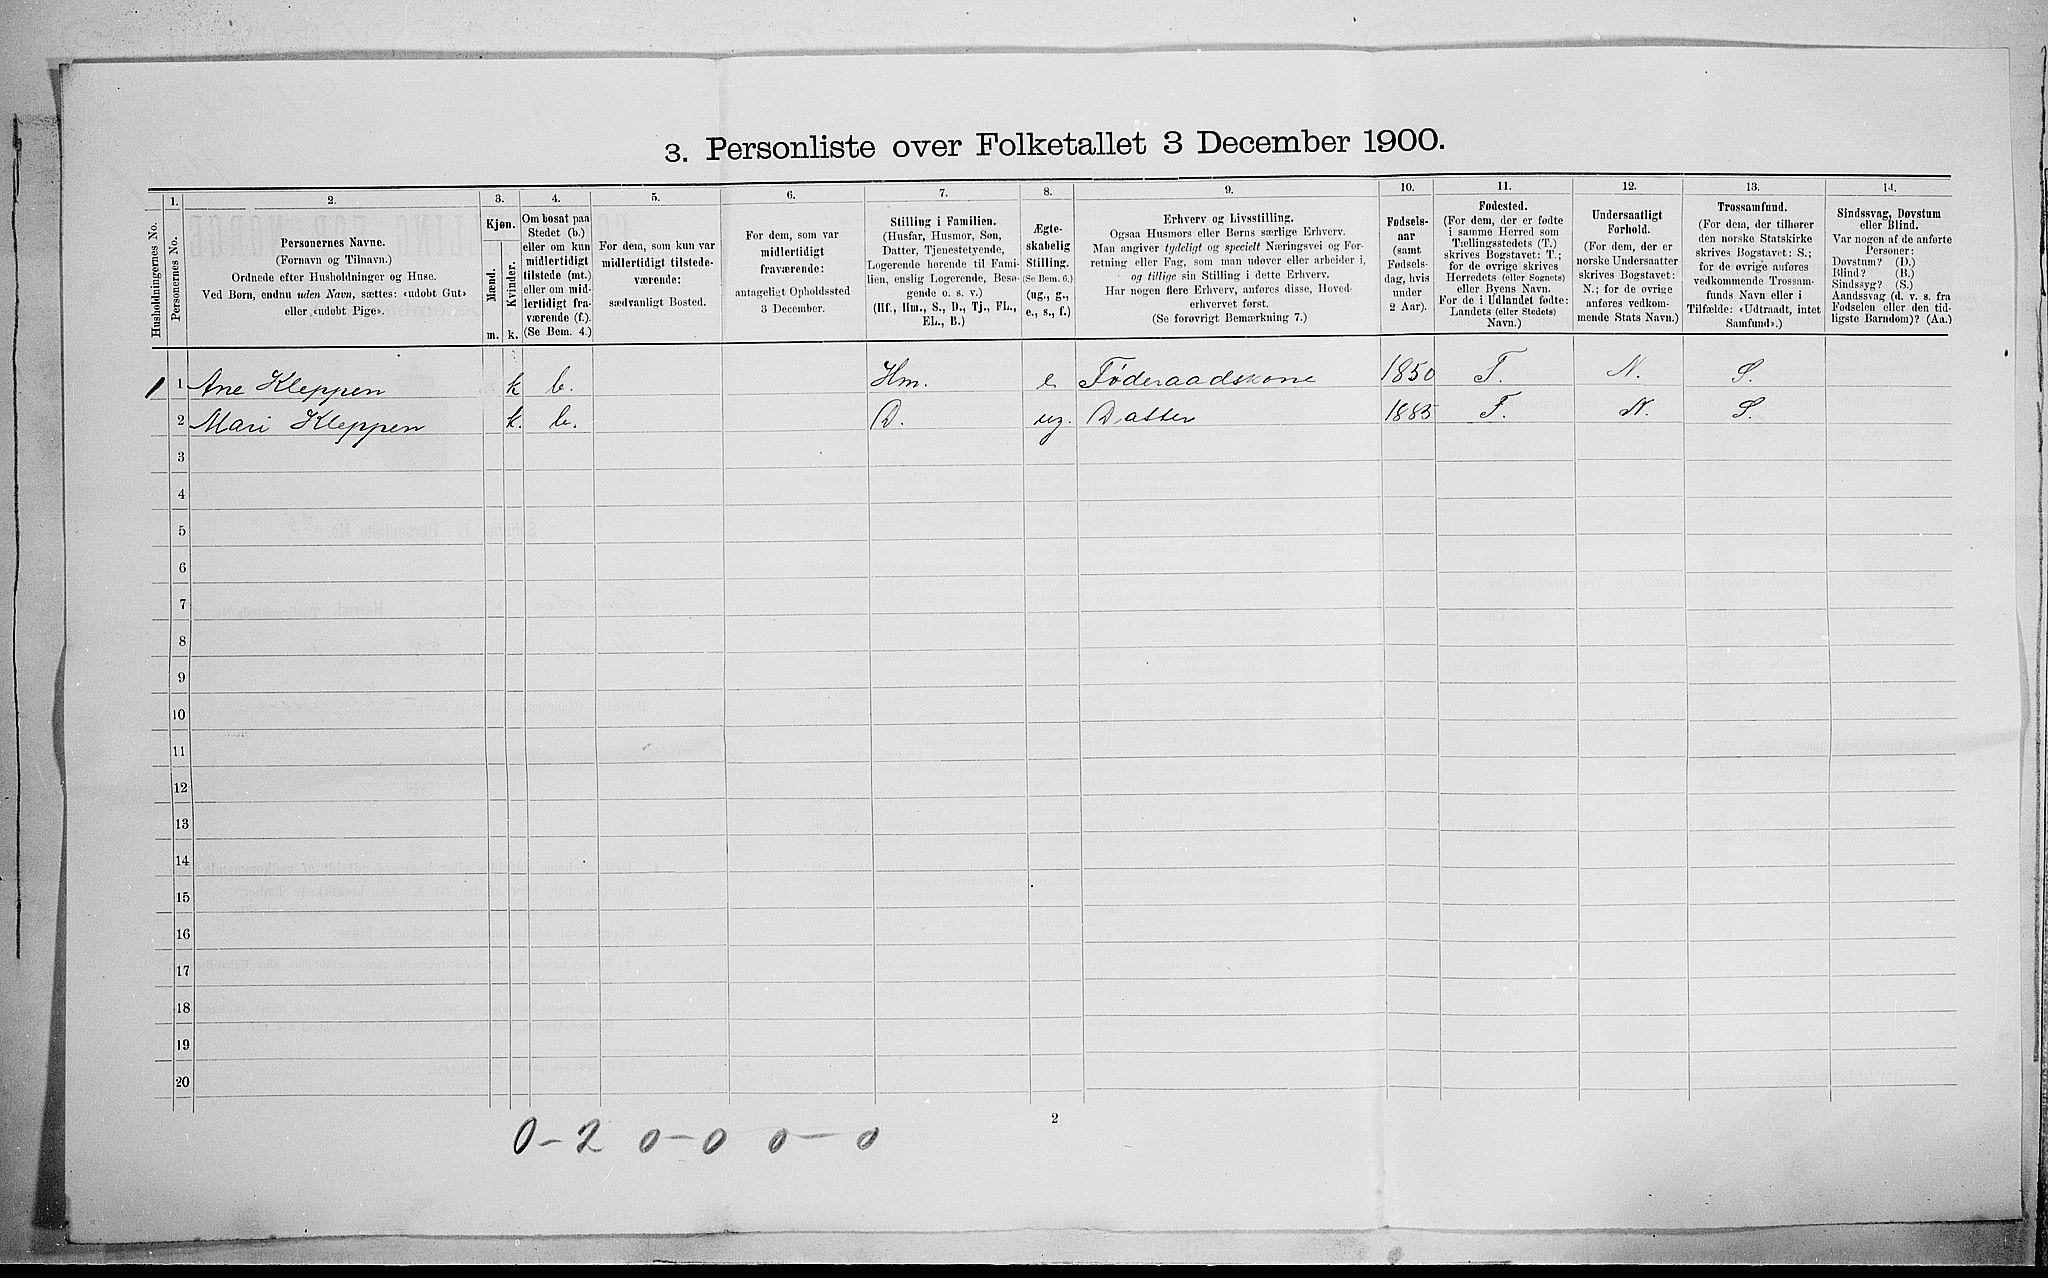 3. Personliste over Folketallet 3 December 1900.
1. 2. 3. 4. 5. 6. 7. 8. 9. 10. 11. 12. 13. 14.
Husholdningernes No.
Personernes No.
Personernes Navne.
(Fornavn og Tilnavn.)
Ordnede efter Husholdninger og Huse.
Ved Børn, endnu uden Navn, sættes: «udøbt Gut»
eller «udøbt Pige».
Kjøn.
Mænd.
Kvinder.
m. k.
Om bosat paa
Stedet (b.)
eller om kun
midlertidigt
tilstede (mt.)
eller om mid-
lertidigt fra-
værende (f.)
(Se Bem. 4.)
For dem, som kun var
midlertidigt tilstede-
værende:
sædvanligt Bosted.
For dem, som var
midlertidigt
fraværende:
antageligt Opholdssted
3 December.
Stilling i Familien.
(Husfar, Husmor, Søn,
Datter, Tjenestetyende,
Logerende hørende til Fami-
lien, enslig Logerende, Besø-
gende o. s. v.)
(Hf., Hm., S., D., Tj., FL.,
EL., B.)
Ægte-
skabelig
Stilling.
(Se Bem. 6.)
(ug., g.,
e., s., f.)
Erhverv og Livsstilling.
Ogsaa Husmors eller Børns særlige Erhverv.
Man angiver tydeligt og specielt Næringsvei og For-
retning eller Fag, som man udøver eller arbeider i,
og tillige sin Stilling i dette Erhverv.
Har nogen flere Erhverv, anføres disse, Hoved-
erhvervet først.
(Se forøvrigt Bemærkning 7.)
Fødsels-
aar
(samt
Fødsels-
dag, hvis
under
2 Aar).
Fødested.
(For dem, der er fødte
i samme Herred som
Tællingsstedets (T.)
skrives Bogstavet: T.;
for de øvrige skrives
Herredets (eller Sognets)
eller Byens Navn.
For de i Udlandet fødte:
Landets (eller Stedets)
Navn.)
Undersaatligt
Forhold.
(For dem, der er
norske Undersaatter
skrives Bogstavet:
N.; for de øvrige
anføres vedkom-
mende Stats Navn.)
Trossamfund.
(For dem, der tilhører
den norske Statskirke
skrives Bogstavet: S.;
for de øvrige anføres
vedkommende Trossam-
funds Navn eller i
Tilfælde: «Udtraadt, intet
Samfund».)
Sindssvag, Døvstum
eller Blind.
Var nogen af de anførte
Personer:
Døvstum? (D.)
Blind? (B.)
Sindssyg? (S.)
Aandssvag (d. v. s. fra
Fødselen eller den tid-
ligste Barndom)? (Aa.)
1 1 Ane Kleppen k b. Hm. e Føderaadskone 1850 T. N. S.
2 Mari Kleppen k. b. D. ug. Datter 1885 T. N. S.
3
4
5
6
7
8
9
10
11
12
13
14
15
16
17
18
19
20
2
0-2 0-0 0-0